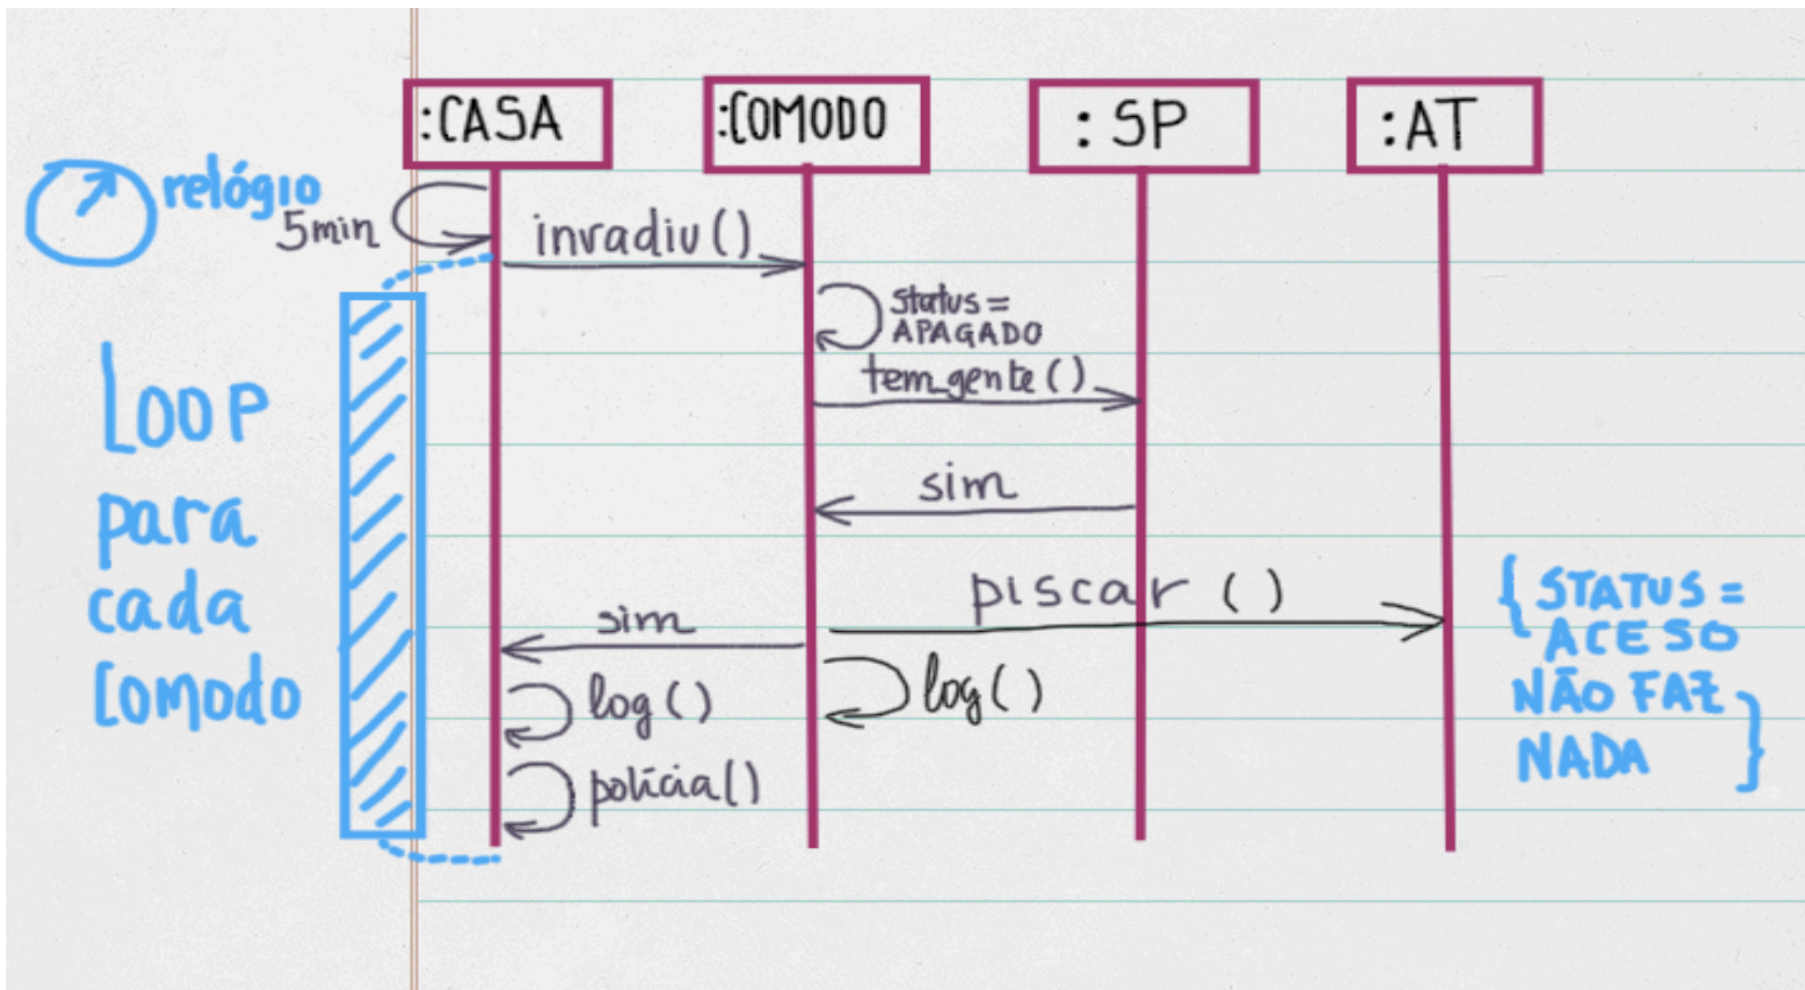 :CASA
:COMODO
: SP
:AT
relógio
5min
invradiu()
status =
APAGADO
tem_gente()
sim
piscar ()
sim
log()
log()
polícia()
LOOP
para
cada
comodo
{ STATUS =
ACESO
NÃO FAZ
NADA }